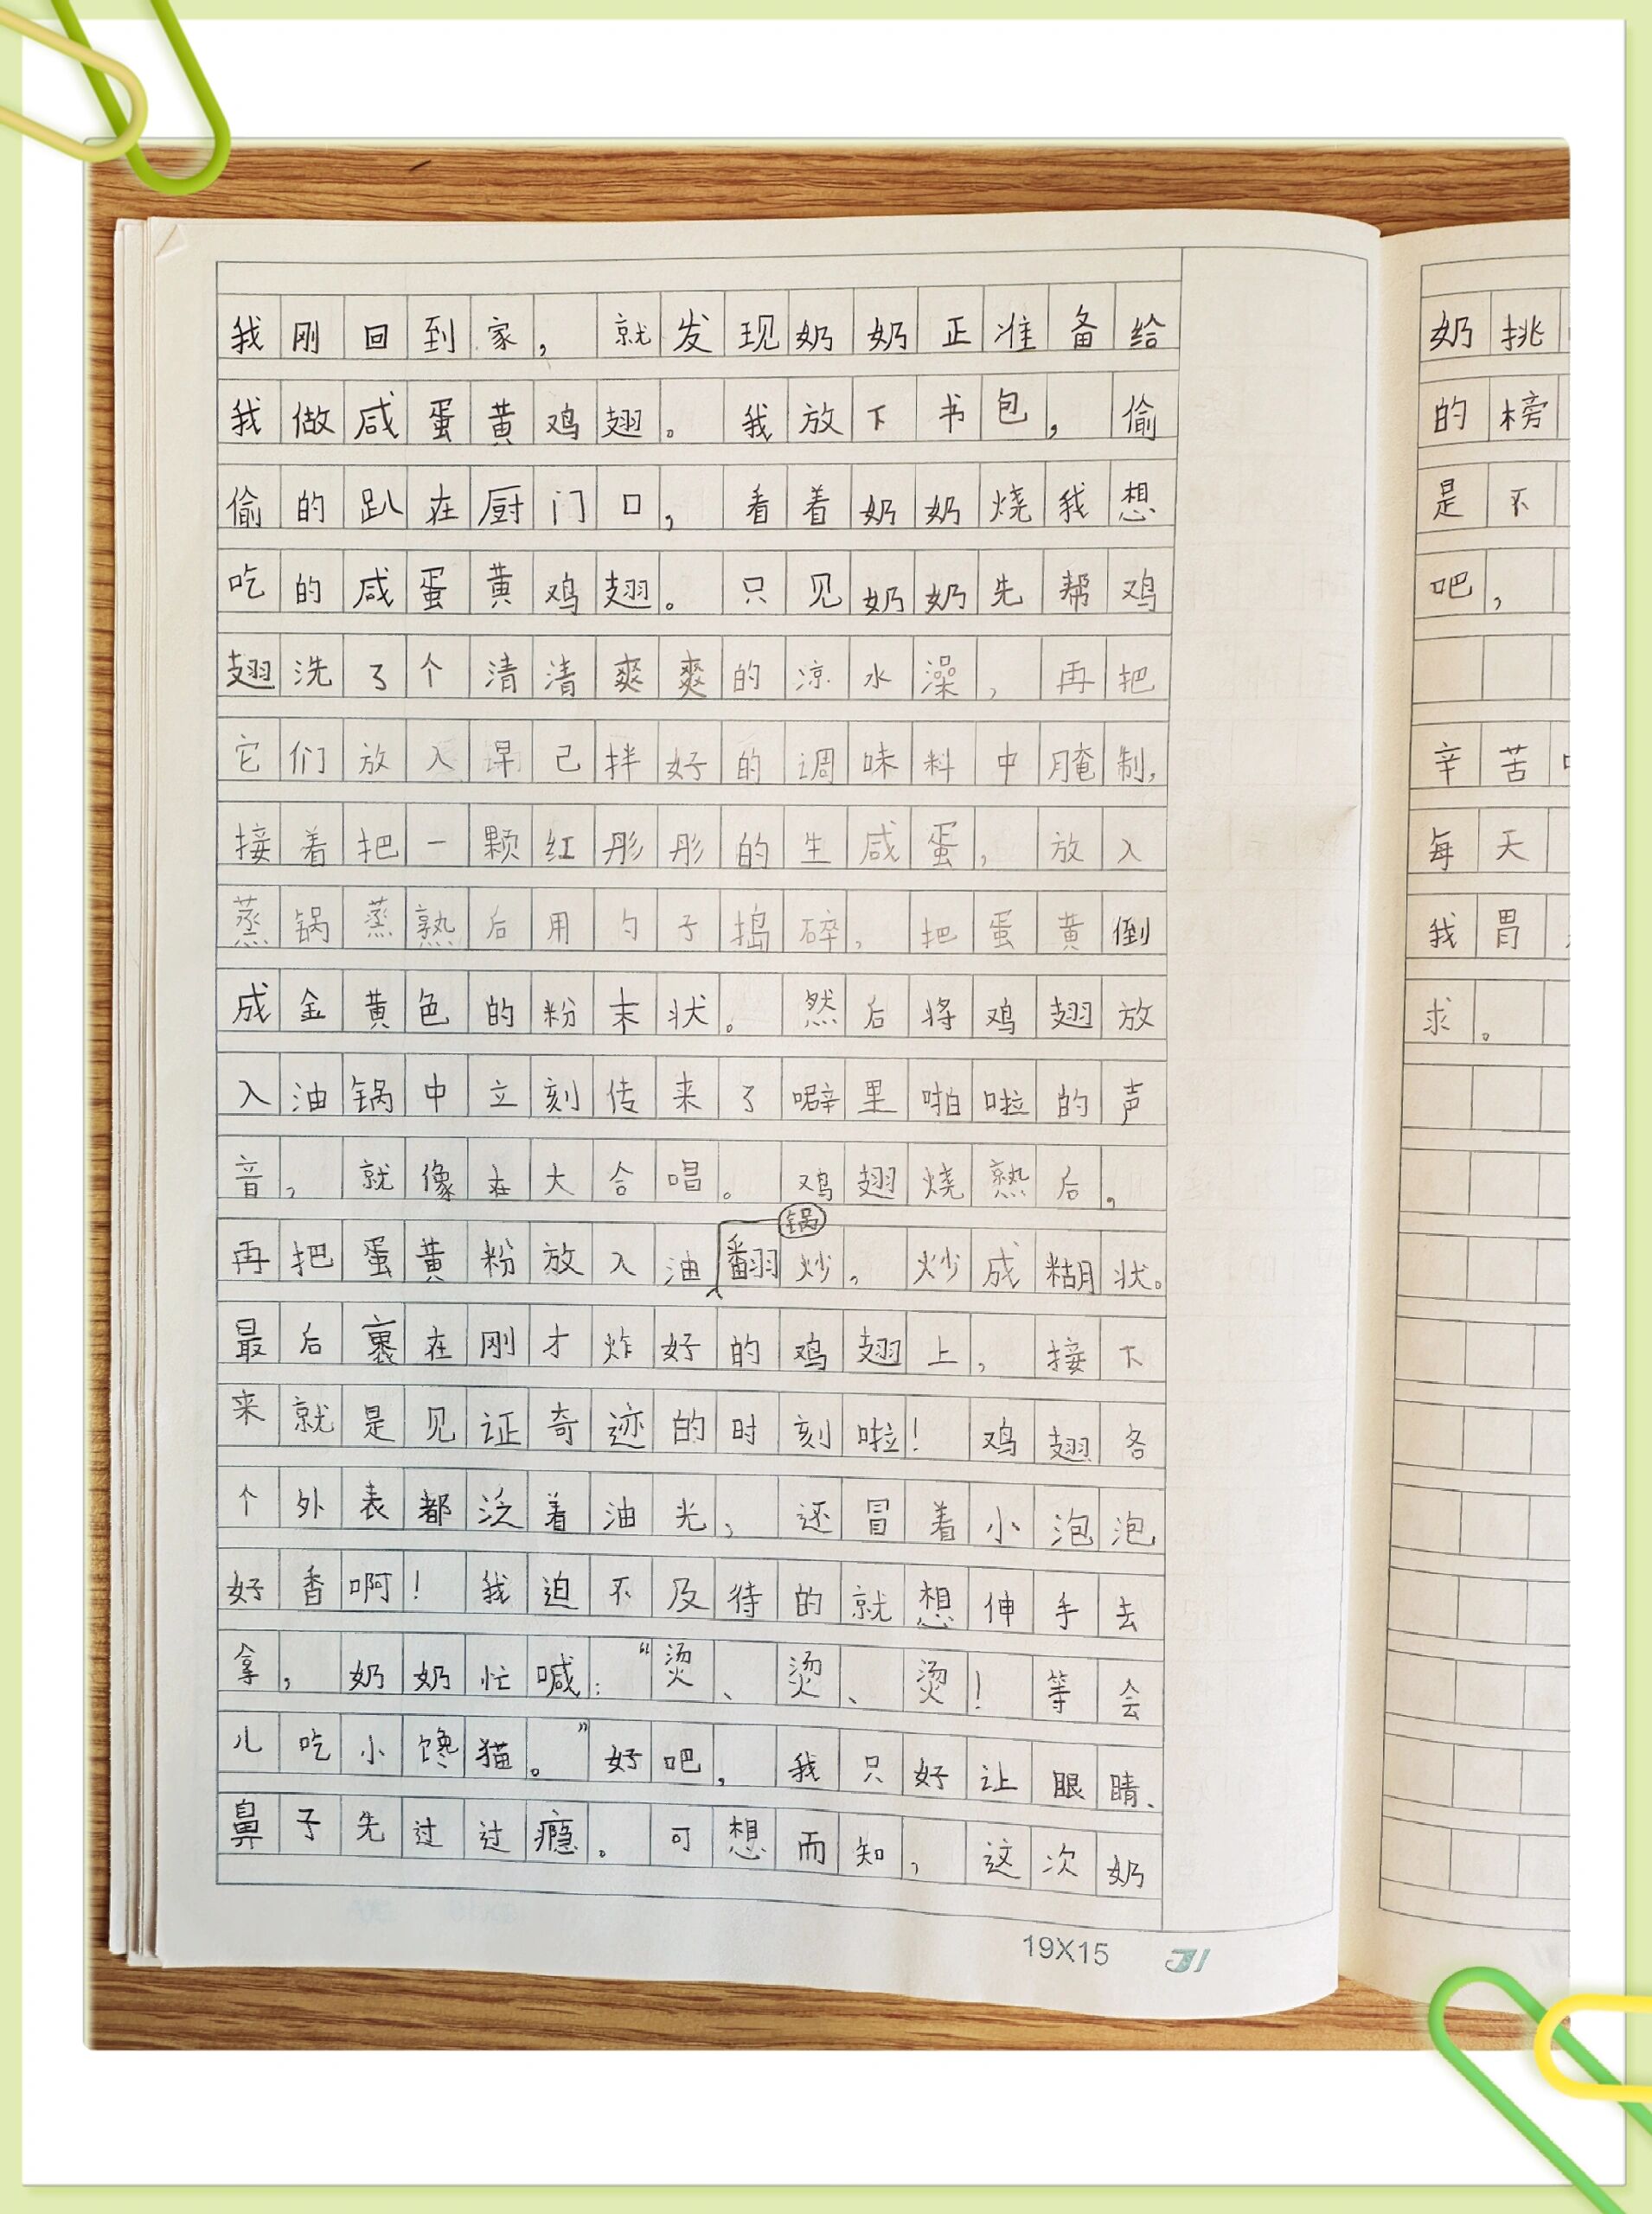 我刚回到家，就发现奶奶正准备给
我做咸蛋黄鸡翅。我放下书包，偷
偷的趴在厨门口，看着奶奶烧我想
吃的咸蛋黄鸡翅。只见奶奶先帮鸡
翅洗了个清清爽爽的凉水澡，再把
它们放入早己拌好的调味料中腌制，
接着把一颗红彤彤的生咸蛋，放入
蒸锅蒸熟后用勺子捣碎，把蛋黄倒
成金黄色的粉末状。然后将鸡翅放
入油锅中立刻传来了噼里啪啦的声
音，就像在大合唱。鸡翅烧熟后，
再把蛋黄粉放入油锅翻炒，炒成糊状。
最后裹在刚才炸好的鸡翅上，接下
来就是见证奇迹的时刻啦！鸡翅各
个外表都泛着油光，还冒着小泡泡
好香啊！我迫不及待的就想伸手去
拿，奶奶忙喊：“烫、烫、烫！等会
儿吃小馋猫。”好吧，我只好让眼睛、
鼻子先过过瘾。可想而知，这次奶
19X15
奶挑
的榜
是不
吧，
辛苦
每天
我胃
求。